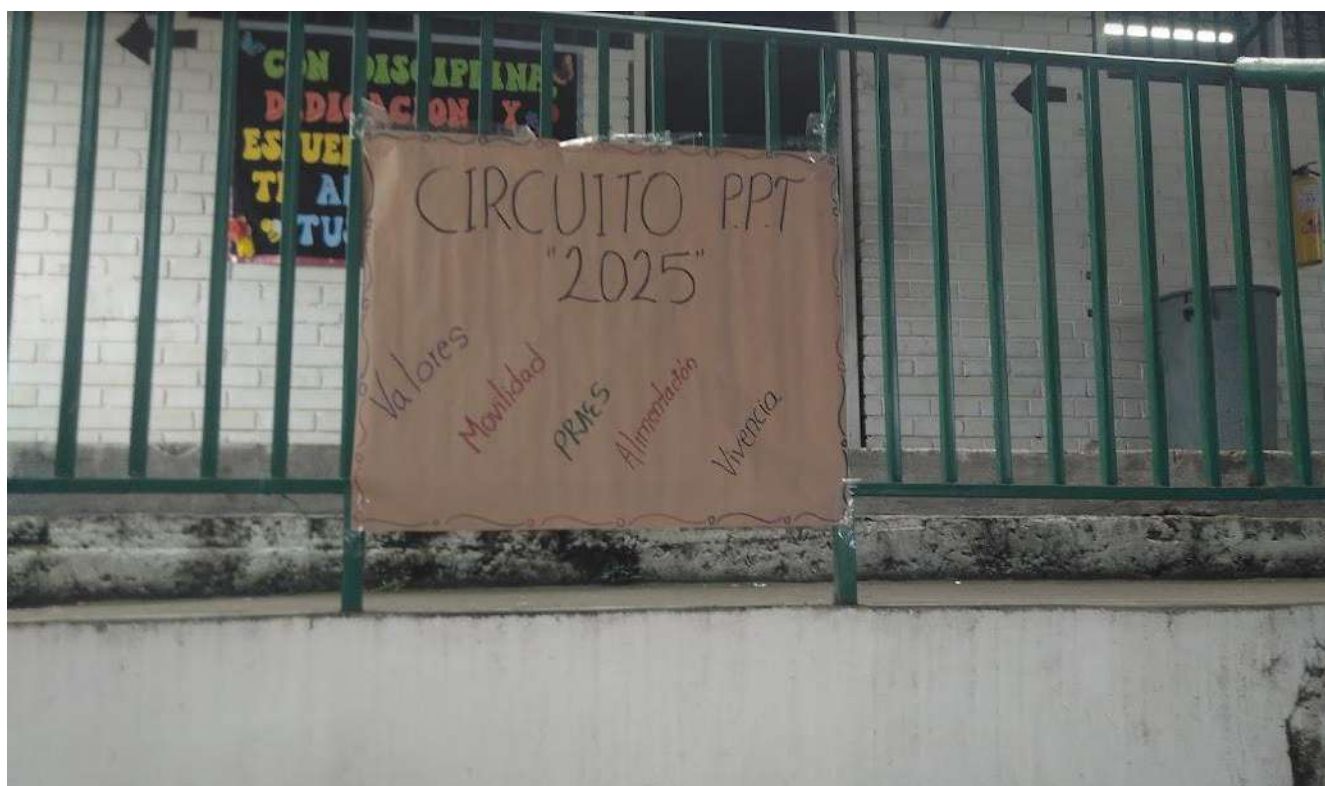 CON DISCIPLINA,
DEDICACION Y
TUS
CIRCUITO P.P.T
"2025"
Valores
Movilidad
PRAES
Alimentación
Vivencia